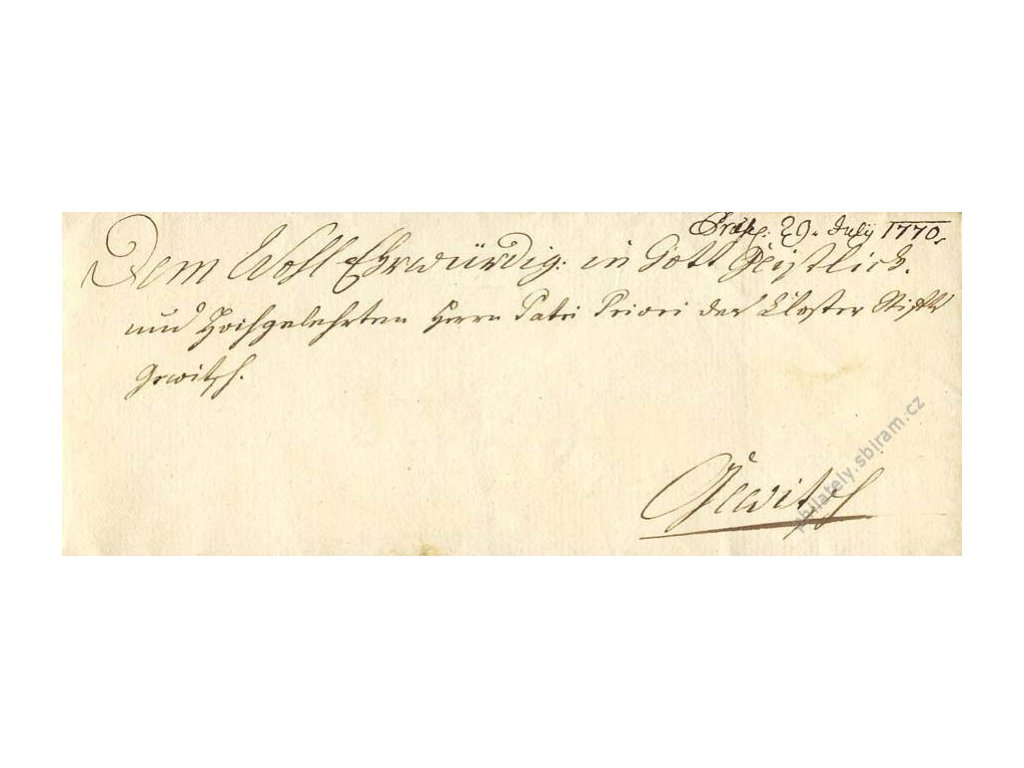 Präs: 29. July 1770.
Dem Wohl Ehrwürdig: in Gott Geistlich.
und Hochgelehrten Herrn Patri Priori des Closter Stifts
Gewitsch.
Gewitsch
philately.sbiram.cz